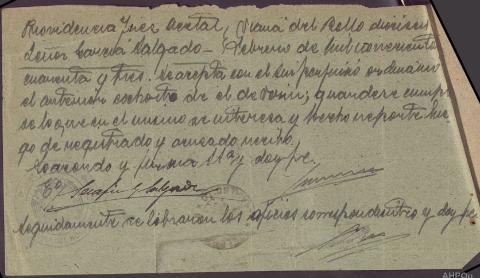 Providencia Juez Acctal, Viana del Bollo dieciseis
Señor García Salgado - Febrero de mil novecientos
cuarenta y tres. Se acepta con el
el anterior exhorto de el de; guardese cumpla
se lo que en el mismo se interesa y hecho reporte lue
go de registrado y acusado recibo.
Lo acordo y firma Sª y doy fe.
Eº Serafin G Salgado
Seguidamente se libraron los oficios correspondientes y doy fe
AHPOu